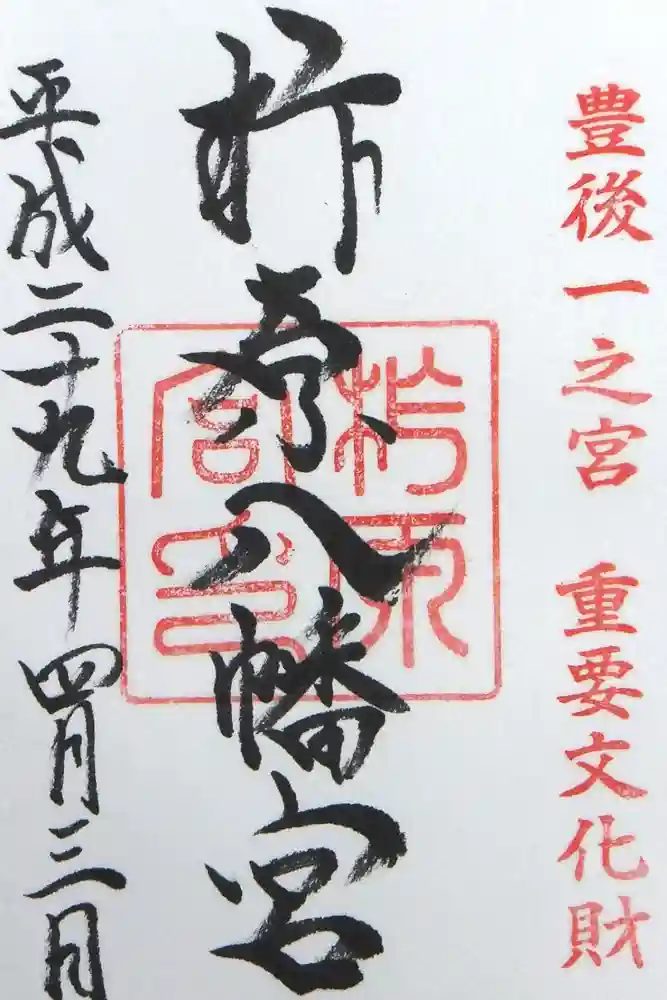 豊後一之宮　重要文化財
柞原八幡宮
柞原
宮印
平成二十九年四月三日